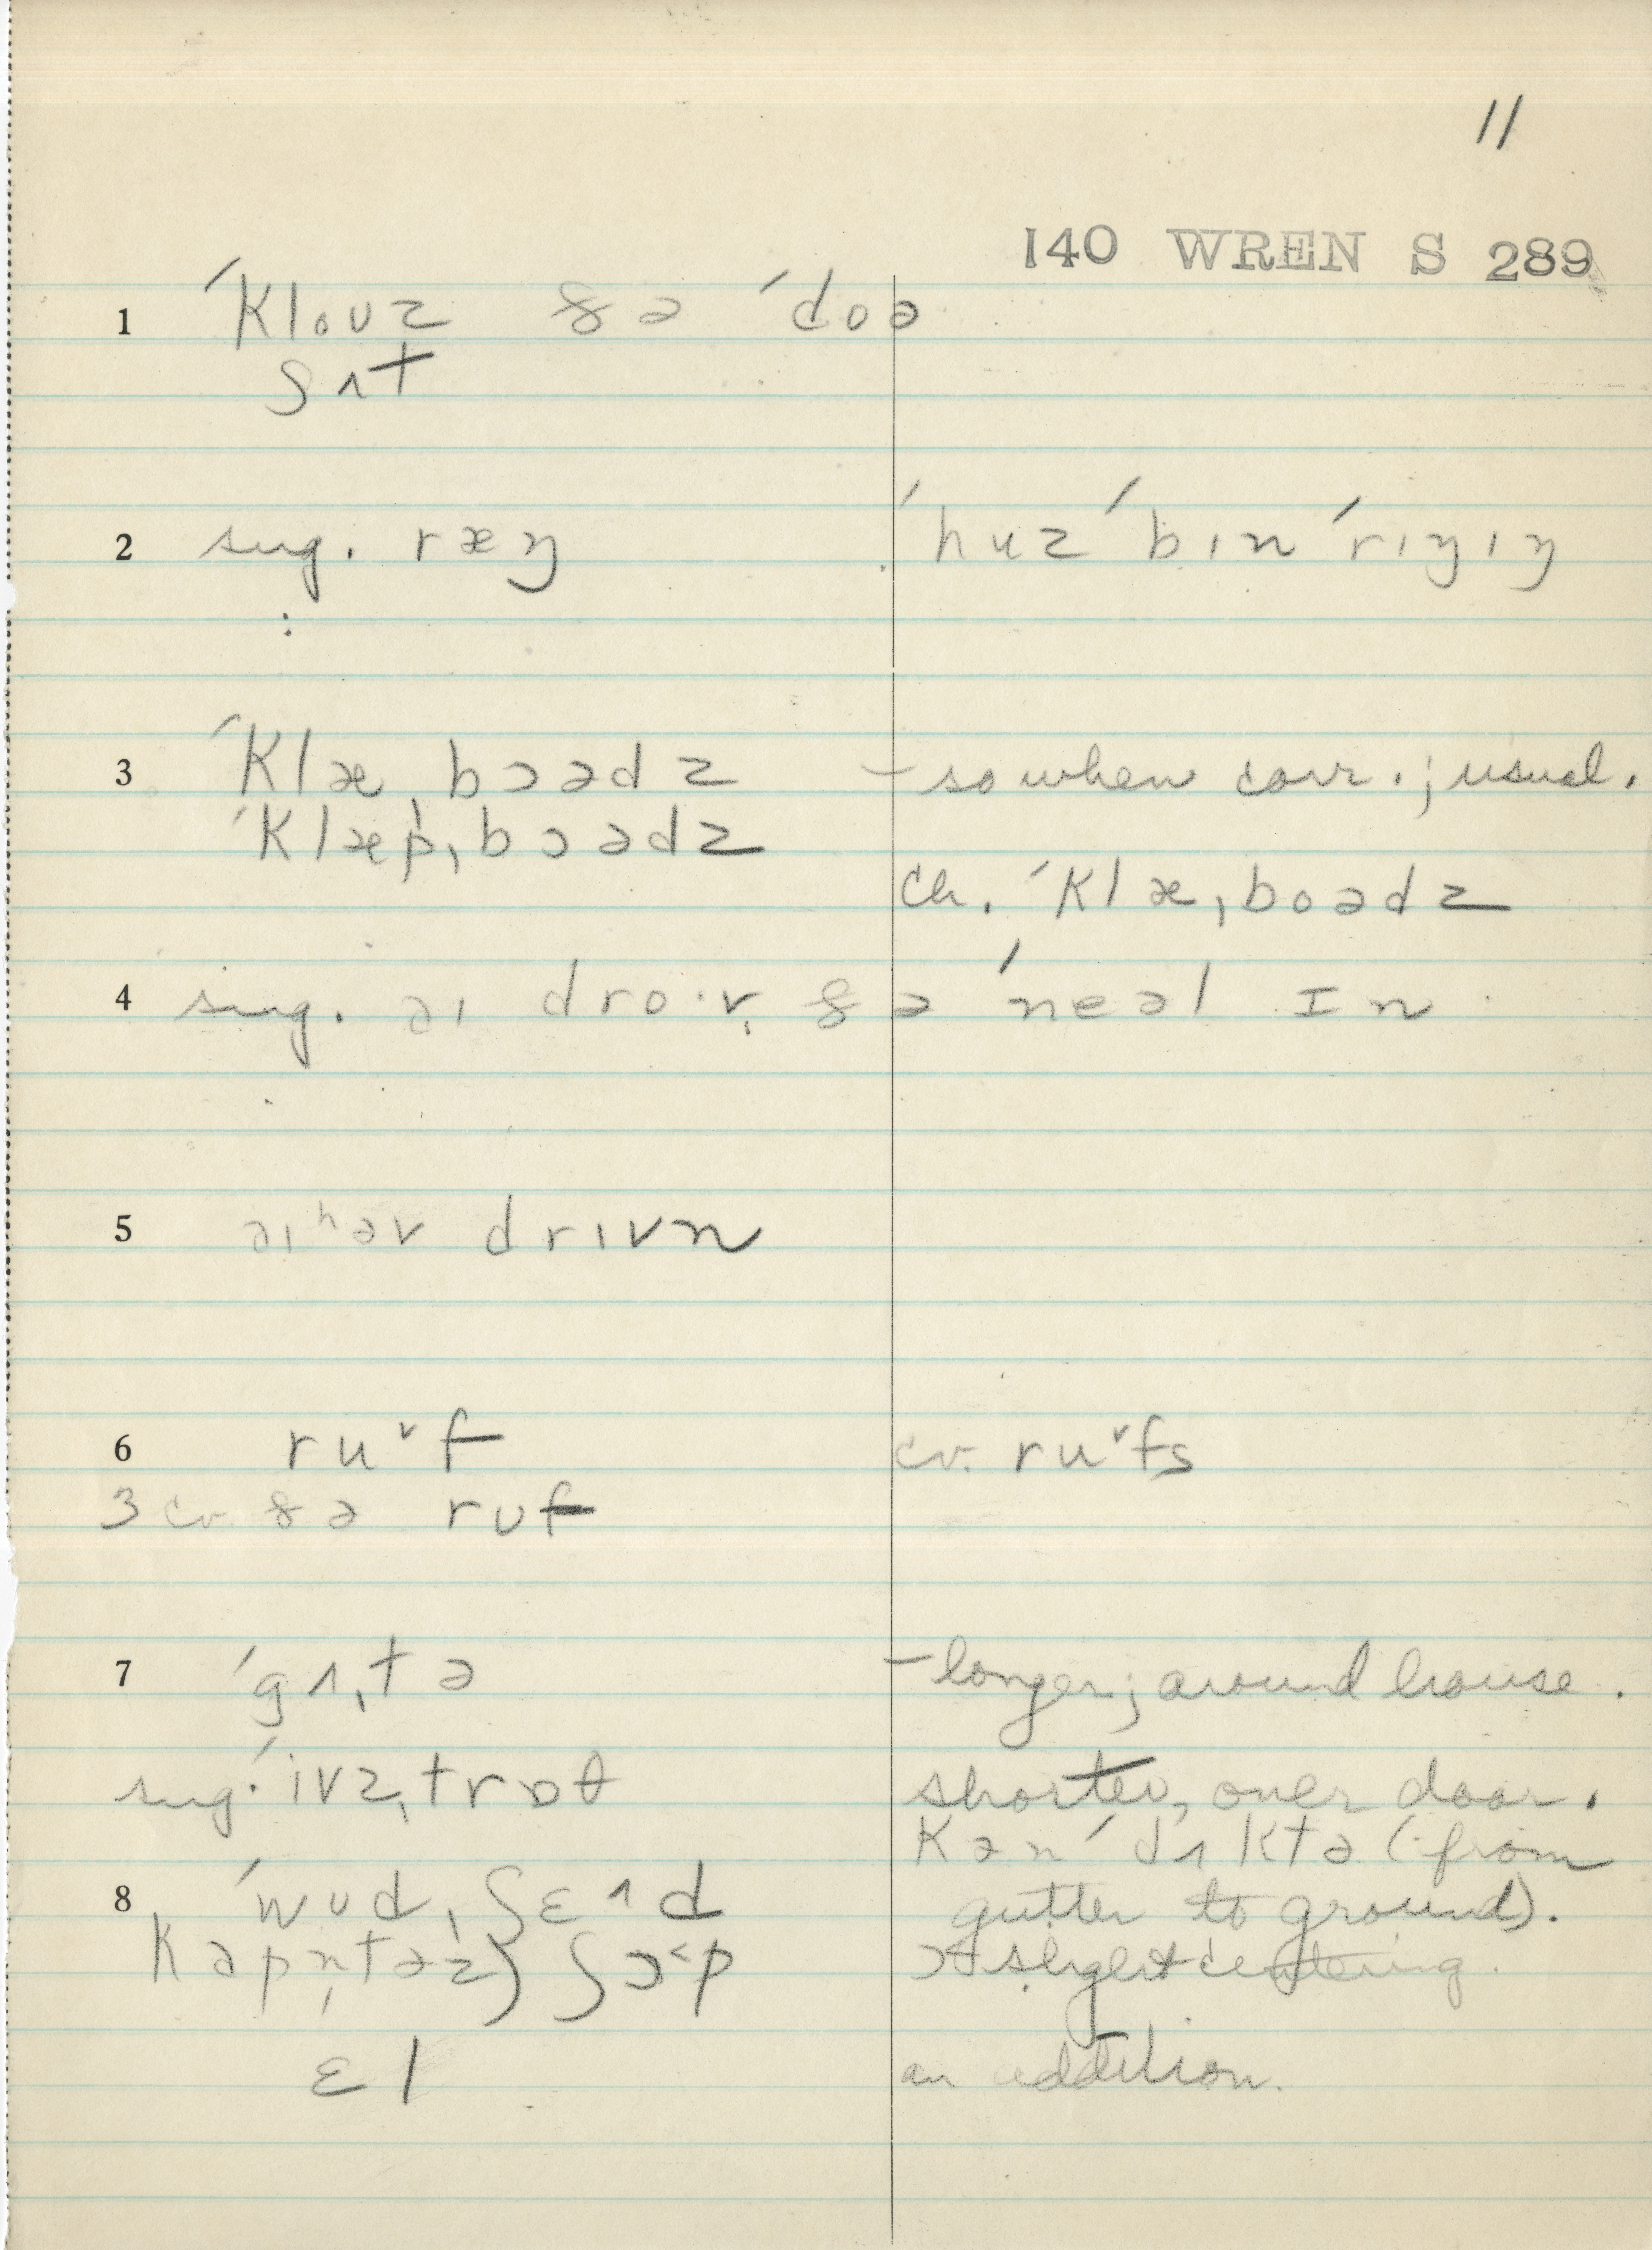 11
140 WREN S 289
1 ´klouz ðə ´doə
ʃʌt
2 sug. ræŋ ´huz ´bɪn ´rɪŋɪŋ
3 ´klæˌbɔədz – so when conv.; usual.
´klæpˌbɔədz
ch. ´klæˌboədz
4 sug. əɪ dro·v ðə ´neəl ɪn
5 əɪ ʰəv drɪvn
6 ruᵛf cv. ruᵛfs
3 cv. ðə rʊf
7 ´gʌˌtə – longer; around house.
sug. ´ivzˌtrɒθ shorter, over door.
kən´dʌktə (from
8 ´wʊdˌʃɛˆd gutter to ground).
kəpn̩təz} ʃɔ˂p slight centering.
ɛl an addition.